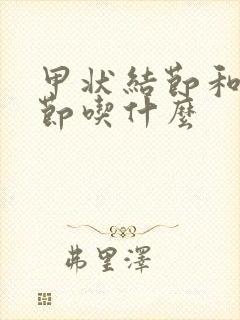 甲状結節和
節喫什麼
弗里澤